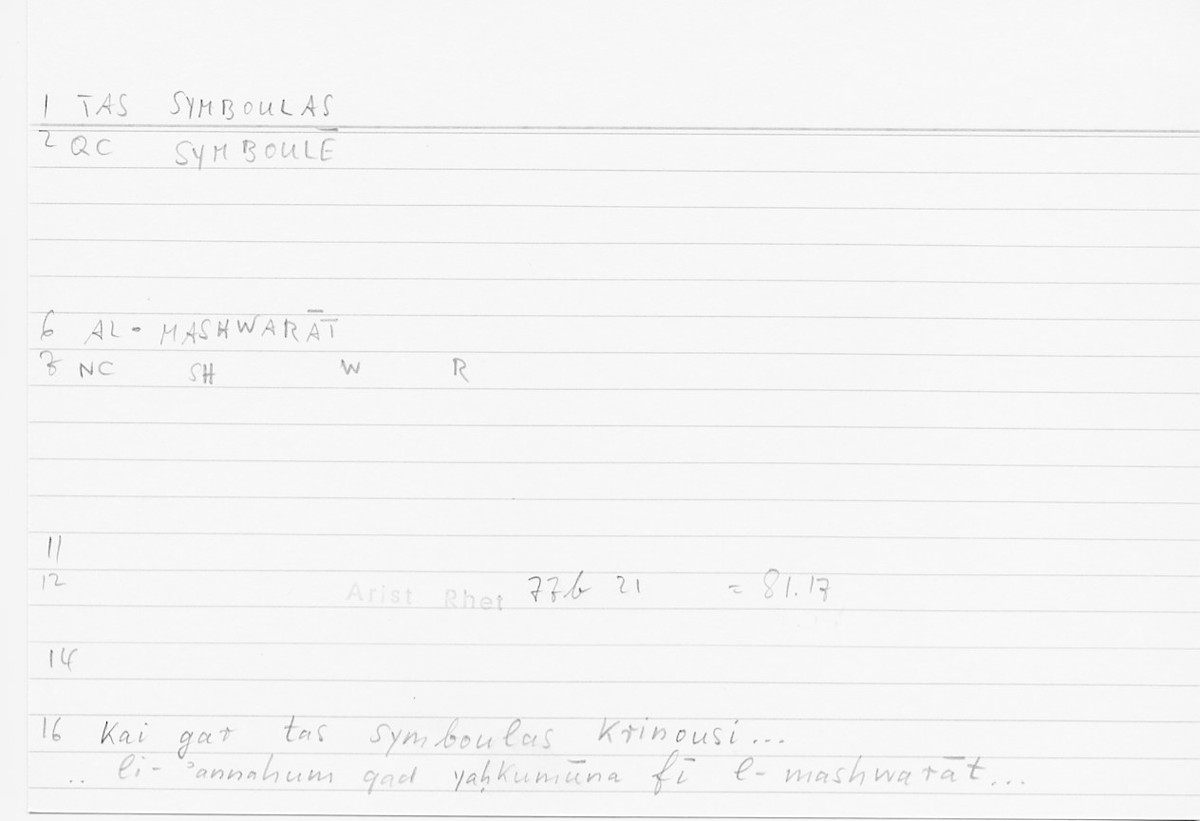 1 TAS SYMBOULAS
2 QC SYMBOULĒ
6 AL-MASHWARĀT
7 NC SH W R
11
12 Arist Rhet 77b 21 = 81.17
14
16 Kai gar tas symboulas krinousi...
.. li-ʾannahum qad yaḥkumūna fī l-mashwarāt...